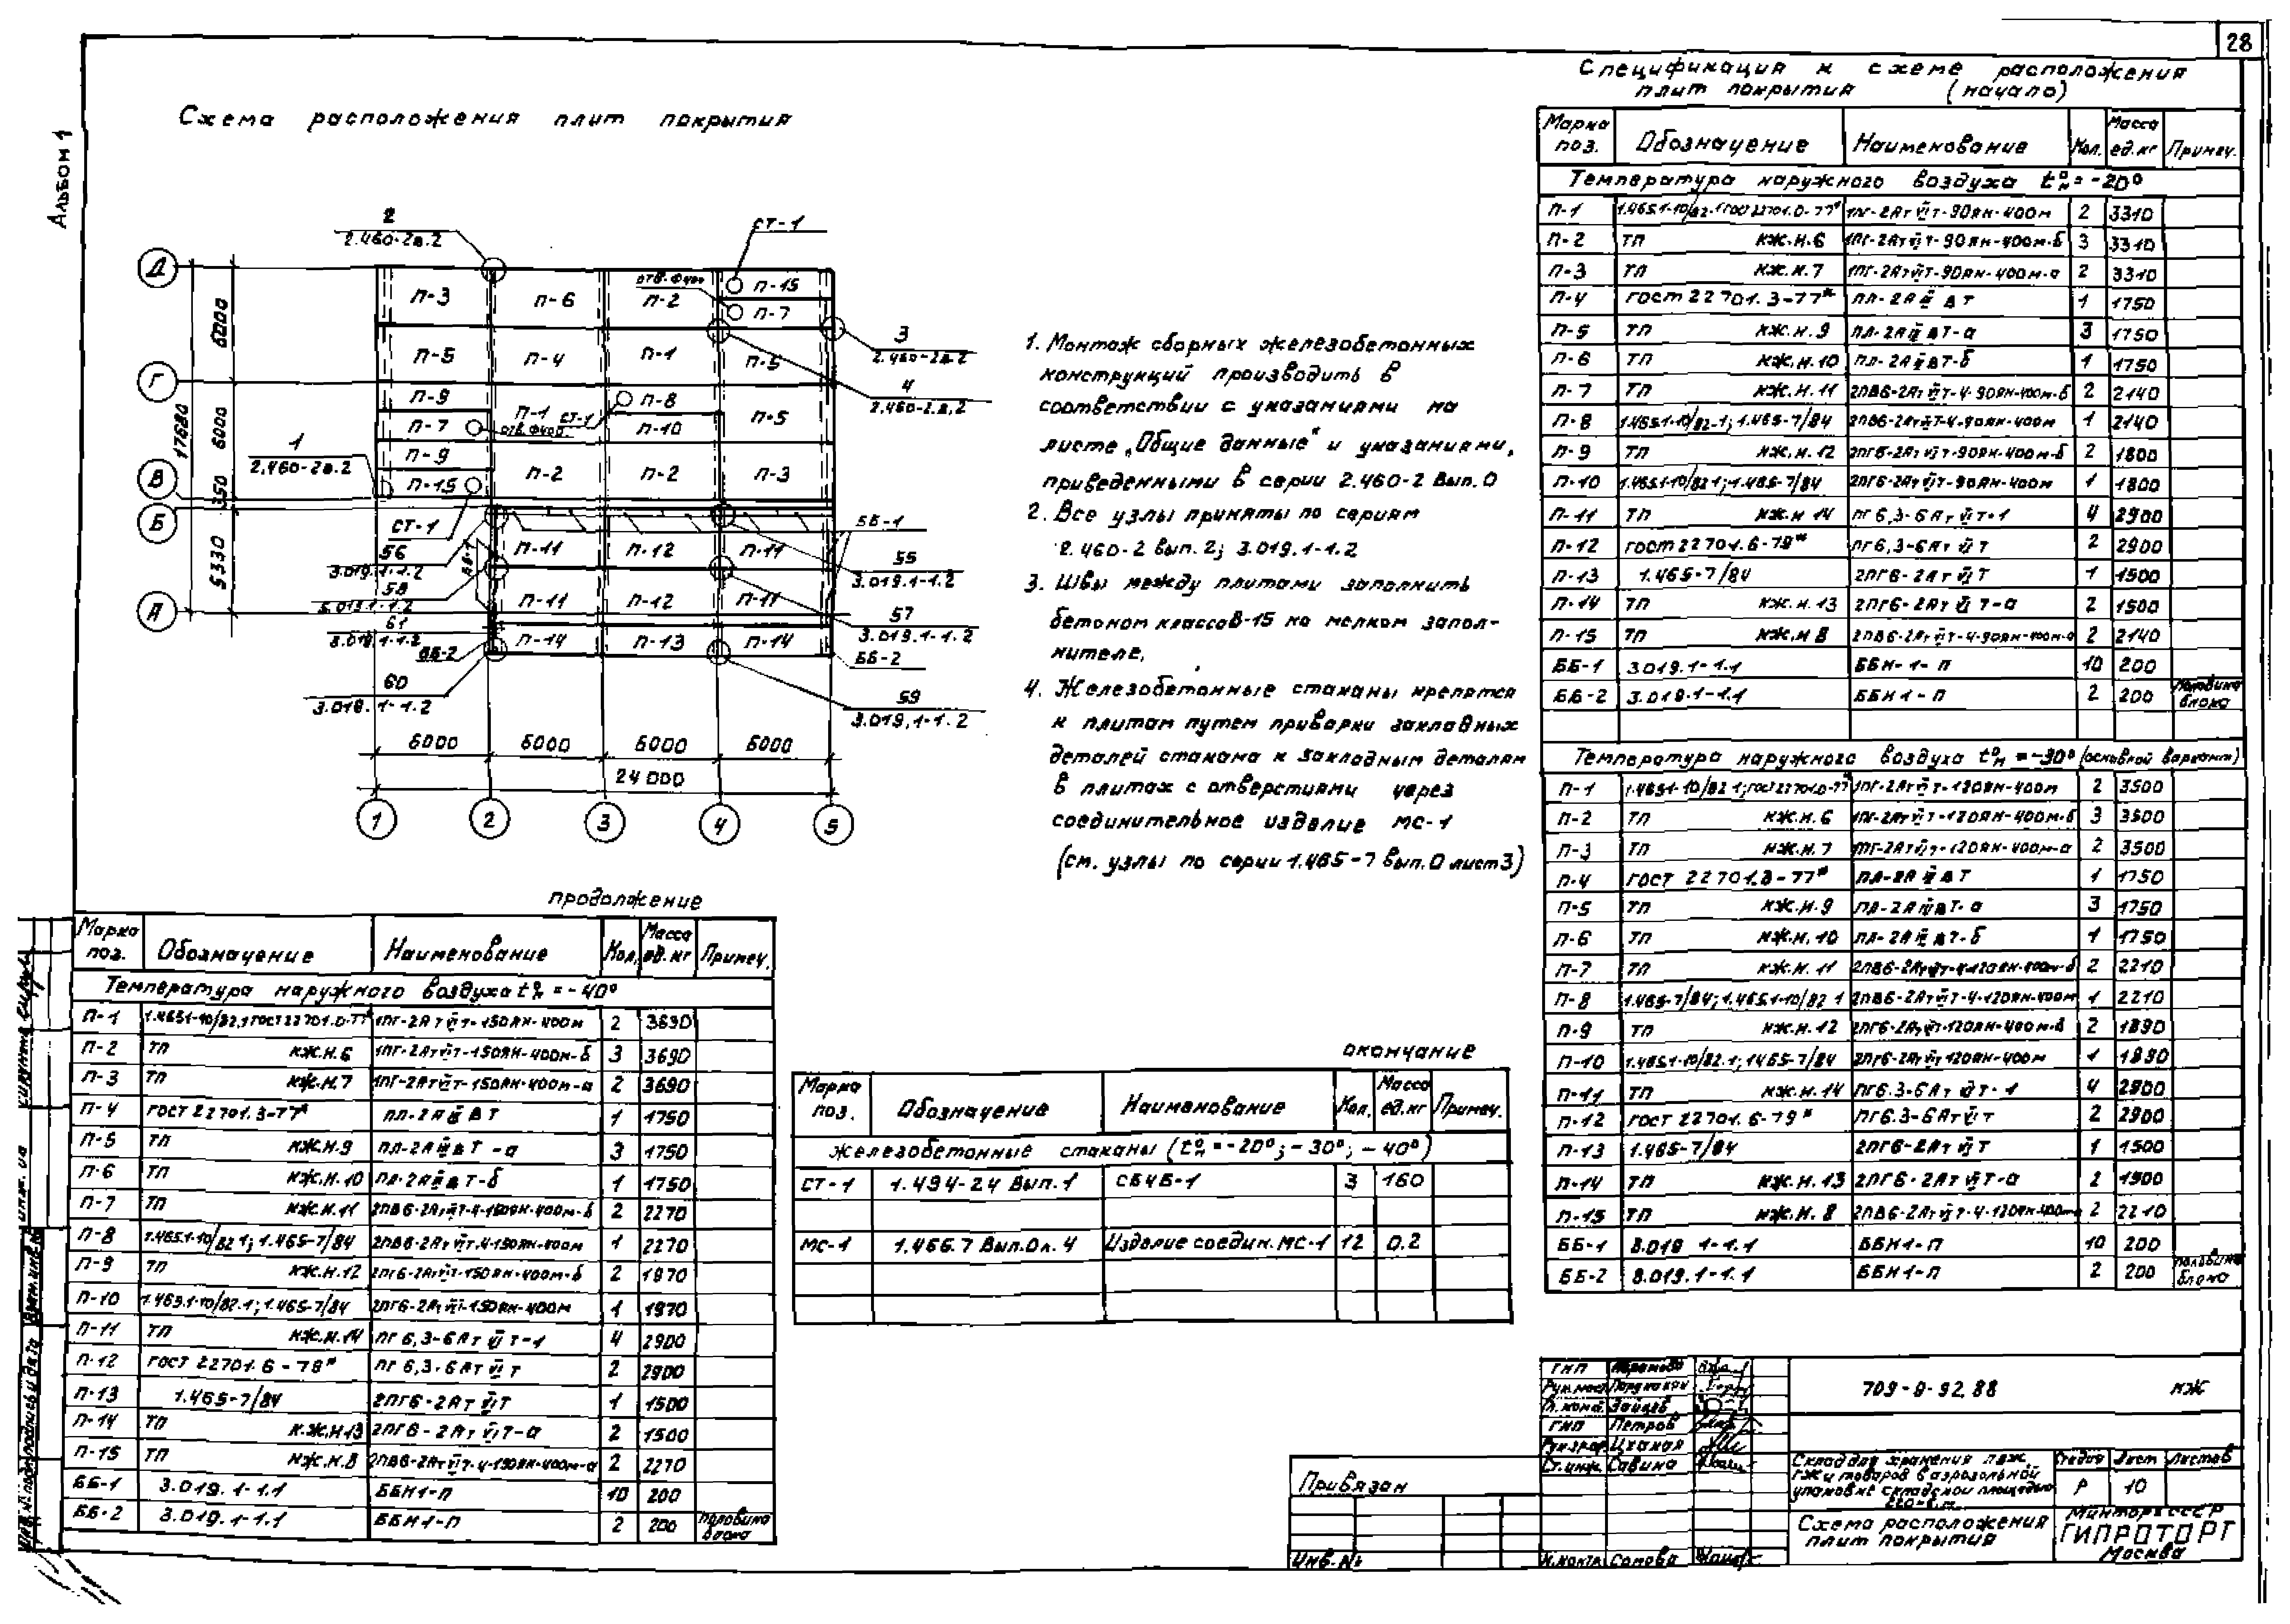 28
Альбом 1
Схема расположения плит покрытия
2
2.460-2в.2
СТ-1
Д
Г
В
Б
А
6000
6000
350
5330
17680
отв.Ф400
П-3
П-6
П-2
П-15
П-7
П-5
П-4
П-1
П-5
П-9
П-1
П-8
П-5
П-7
отв.Ф400
СТ-1
П-10
П-9
П-2
П-2
П-3
П-15
3
2.460-2в.2
4
2.460-2.в.2
1
2.460-2в.2
СТ-1
ББ-1
56
3.019.1-1.2
ББ-1
П-11
П-12
П-11
55
3.019.1-1.2
58
3.019.1-1.2
П-11
П-12
П-11
57
3.019.1-1.2
61
3.019.1-1.2
ББ-2
П-14
П-13
П-14
ББ-2
60
3.019.1-1.2
59
3.019.1-1.2
6000 6000 6000 6000
24000
1 2 3 4 5
1. Монтаж сборных железобетонных
конструкций производить в
соответствии с указаниями на
листе „Общие данные" и указаниями,
приведенными в серии 2.460-2 Вып.0
2. Все узлы приняты по сериям
2.460-2 вып.2; 3.019.1-1.2
3. Швы между плитами заполнить
бетоном класса В-15 на мелком запол-
нителе.
4. Железобетонные стаканы крепятся
к плитам путем приварки закладных
деталей стакана к закладным деталям
в плитах с отверстиями через
соединительное изделие МС-1
(см. узлы по серии 1.465-7 вып.0 лист 3)
Спецификация к схеме расположения
плит покрытия (начало)
Марка поз. Обозначение Наименование Кол. Масса ед.кг Примеч.
Температура наружного воздуха tн° = -20°
П-1 1.465.1-10/82-1 ГОСТ 22701.0-77* 1ПГ-2АтVIТ-90ЯН-400м 2 3310
П-2 ТП КЖ.И.6 1ПГ-2АтVIТ-90ЯН-400м-б 3 3310
П-3 ТП КЖ.И.7 1ПГ-2АтVIТ-90ЯН-400м-а 2 3310
П-4 ГОСТ 22701.3-77* ПЛ-2АIIIвТ 1 1750
П-5 ТП КЖ.И.9 ПЛ-2АIIIвТ-а 3 1750
П-6 ТП КЖ.И.10 ПЛ-2АIIIвТ-б 1 1750
П-7 ТП КЖ.И.11 2ПВ6-2АтVIТ-4-90ЯН-400м-б 2 2140
П-8 1.465.1-10/82-1; 1.465-7/84 2ПВ6-2АтVIТ-4-90ЯН-400м 1 2140
П-9 ТП КЖ.И.12 2ПГ6-2АтVIТ-90ЯН-400м-б 2 1800
П-10 1.465.1-10/82 1; 1.465-7/84 2ПГ6-2АтVIТ-90ЯН-400м 1 1800
П-11 ТП КЖ.И 14 ПГ6,3-6АтVIТ-1 4 2900
П-12 ГОСТ 22701.6-79* ПГ6,3-6АтVIТ 2 2900
П-13 1.465-7/84 2ПГ6-2АтVIТ 1 1500
П-14 ТП КЖ.И.13 2ПГ6-2АтVIТ-а 2 1500
П-15 ТП КЖ.И 8 2ПВ6-2АтVIТ-4-90ЯН-400м-а 2 2140
ББ-1 3.019.1-1.1 ББН-1-П 10 200
ББ-2 3.019.1-1.1 ББН1-П 2 200 половина блока
Температура наружного воздуха tн° = -30° (основной вариант)
П-1 1.465.1-10/82 1; ГОСТ 22701.0-77* 1ПГ-2АтVIТ-120ЯН-400м 2 3500
П-2 ТП КЖ.И.6 1ПГ-2АтVIТ-120ЯН-400м-б 3 3500
П-3 ТП КЖ.И.7 1ПГ-2АтVIТ-120ЯН-400м-а 2 3500
П-4 ГОСТ 22701.3-77* ПЛ-2АIIIвТ 1 1750
П-5 ТП КЖ.И.9 ПЛ-2АIIIвТ-а 3 1750
П-6 ТП КЖ.И.10 ПЛ-2АIIIвТ-б 1 1750
П-7 ТП КЖ.И.11 2ПВ6-2АтVIТ-4-120ЯН-400м-б 2 2210
П-8 1.465-7/84; 1.465.1-10/82 1 2ПВ6-2АтVIТ-4-120ЯН-400м 1 2210
П-9 ТП КЖ.И.12 2ПГ6-2АтVIТ-120ЯН-400м-б 2 1890
П-10 1.465.1-10/82.1; 1465-7/84 2ПГ6-2АтVIТ 120ЯН-400м 1 1890
П-11 ТП КЖ.И.14 ПГ6.3-6АтVIТ-1 4 2900
П-12 ГОСТ 22701.6-79* ПГ6.3-6АтVIТ 2 2900
П-13 1.465-7/84 2ПГ6-2АтVIТ 1 1500
П-14 ТП КЖ.И.13 2ПГ6-2АтVIТ-а 2 1500
П-15 ТП КЖ.И.8 2ПВ6-2АтVIТ-4-120ЯН-400м-а 2 2210
ББ-1 3.019 1-1.1 ББН1-П 10 200
ББ-2 3.019.1-1.1 ББН1-П 2 200 половина блока
продолжение
Марка поз. Обозначение Наименование Кол. Масса ед.кг Примеч.
Температура наружного воздуха tн° = -40°
П-1 1.465.1-10/82.1 ГОСТ 22701.0-77* 1ПГ-2АтVIТ-150ЯН-400м 2 3690
П-2 ТП КЖ.И.6 1ПГ-2АтVIТ-150ЯН-400м-б 3 3690
П-3 ТП КЖ.И.7 1ПГ-2АтVIТ-150ЯН-400м-а 2 3690
П-4 ГОСТ 22701.3-77* ПЛ-2АIIIвТ 1 1750
П-5 ТП КЖ.И.9 ПЛ-2АIIIвТ-а 3 1750
П-6 ТП КЖ.И.10 ПЛ-2АIIIвТ-б 1 1750
П-7 ТП КЖ.И.11 2ПВ6-2АтVIТ-4-150ЯН-400м-б 2 2270
П-8 1.465.1-10/82 1; 1.465-7/84 2ПВ6-2АтVIТ.4-150ЯН-400м 1 2270
П-9 ТП КЖ.И.12 2ПГ6-2АтVIТ-150ЯН-400м-б 2 1970
П-10 1.465.1-10/82.1; 1.465-7/84 2ПГ6-2АтVIТ-150ЯН-400м 1 1970
П-11 ТП КЖ.И.14 ПГ6,3-6АтVIТ-1 4 2900
П-12 ГОСТ 22701.6-79* ПГ6,3-6АтVIТ 2 2900
П-13 1.465-7/84 2ПГ6-2АтVIТ 1 1500
П-14 ТП КЖ.И13 2ПГ6-2АтVIТ-а 2 1500
П-15 ТП КЖ.И.8 2ПВ6-2АтVIТ-4-150ЯН-400м-а 2 2270
ББ-1 3.019.1-1.1 ББН1-П 10 200
ББ-2 3.019.1-1.1 ББН1-П 2 200 половина блока
окончание
Марка поз. Обозначение Наименование Кол. Масса ед.кг Примеч.
Железобетонные стаканы (tн° = -20°; -30°; -40°)
СТ-1 1.494-24 Вып.1 СБ4Б-1 3 160
МС-1 1.465.7 Вып.0 л.4 Изделие соедин. МС-1 12 0.2
ГИП
Рук.маст
Гл.конс. Зайцев
ГИП Петров
Рук.гр. Цхакая
Ст.инж. Савина
Н.контр. Сомова
709-9-92.88 КЖ
Склад для хранения ЛВЖ,
ГЖ и товаров в аэрозольной
упаковке складской площадью
Стадия Лист Листов
Р 10
Схема расположения
плит покрытия
Минторг СССР
ГИПРОТОРГ
Москва
Привязан
Инв.№
Инв.№ подл. Подпись и дата Взам.инв.№